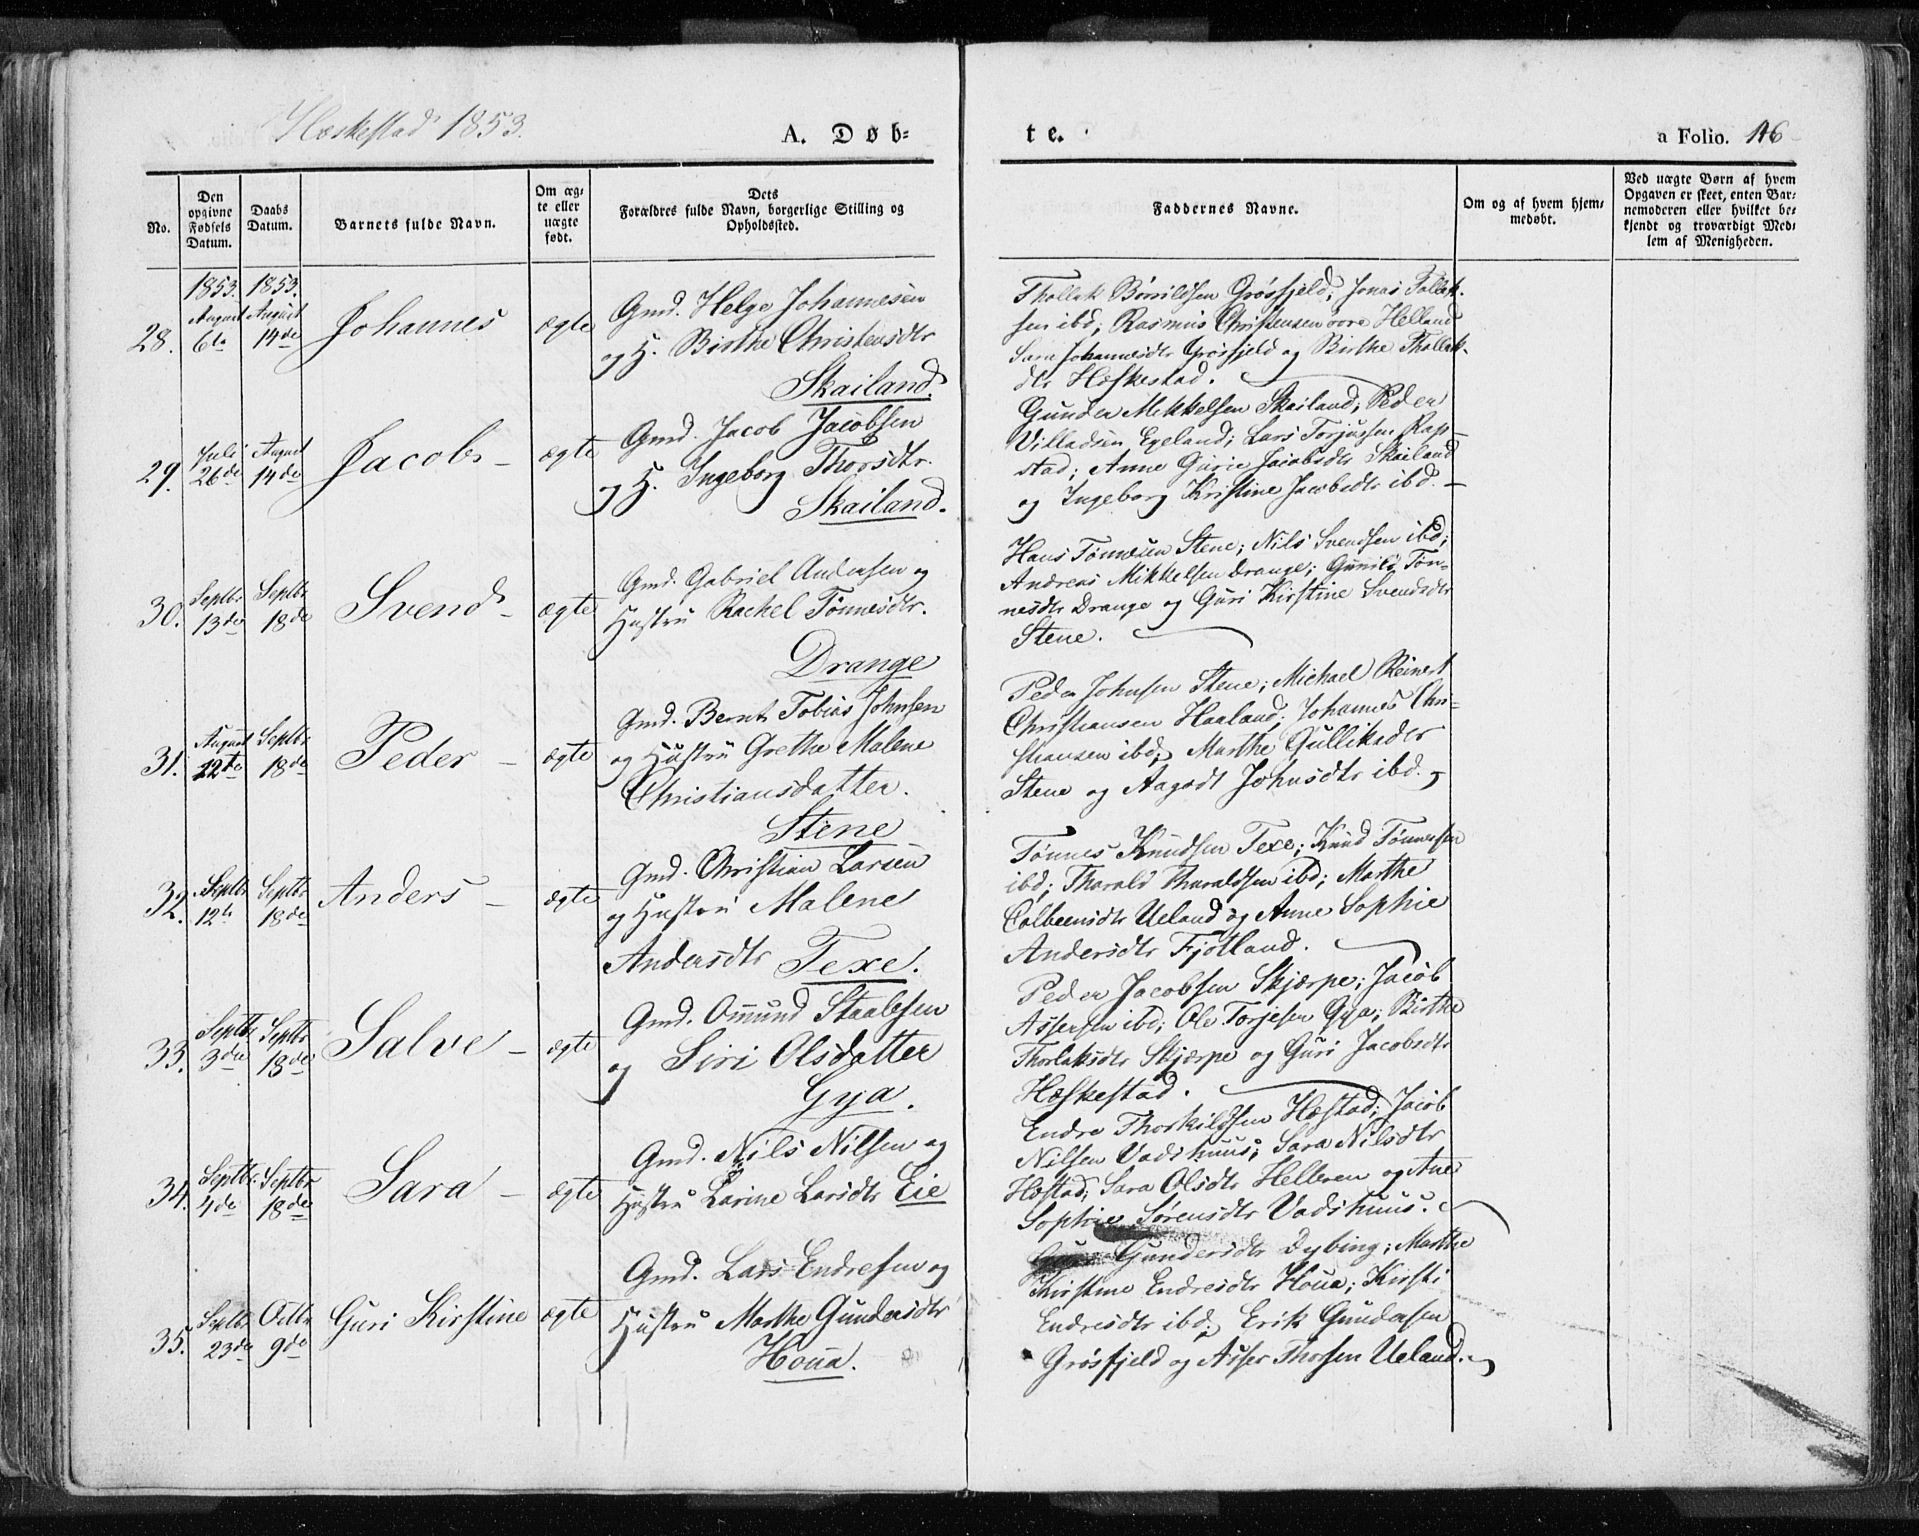 Heskestad 1853.
A. Døb-
te.
a Folio. 116
No.
Den opgivne Fødsels Datum.
Daabs Datum.
Barnets fulde Navn.
Om ægte eller uægte født.
Dets Forældres fulde Navn, borgerlige Stilling og Opholdssted.
Faddernes Navne.
Om og af hvem hjemmedøbt.
Ved uægte Børn af hvem Opgaven er skeet, enten Barnemoderen eller hvilket bekjendt og troværdigt Medlem af Menigheden.
1853. 1853.
28. August 6te August 14de Johannes ægte
Gmd. Helge Johannesen
og H. Birthe Christensdtr
Skailand.
Thollak Børrildsen Grøsfjeld; Jonas Tollak-
sen ibd; Rasmus Christensen øvre Helland
Sara Johannesdtr Grøsfjeld og Birthe Thollak-
dtr Heskestad.
29. Juli 26de August 14de Jacob - ægte
Gmd. Jacob Jacobsen
og H. Ingeborg Thorsdtr.
Skailand.
Gunder Mikkelsen Skailand; Peder
Villadsen Egeland; Lars Torjussen Rap-
stad; Anne Gurie Jacobsdtr Skailand
og Ingeborg Kristine Jacobsdtr ibd. -
30. Septbr 13de Septbr 18de Svend - ægte
Gmd. Gabriel Andersen og
Hustru Rachel Tønnesdtr.
Drange
Hans Tønnesen Stene; Nils Svendsen ibd;
Andreas Mikkelsen Drange; Gunild Tøn-
nesdtr Drange og Guri Kirstine Svendsdtr
Stene.
31. August 22de Septbr 18de Peder - ægte
Gmd. Bernt Tobias Johnsen
og Hustru Grethe Malene
Christiansdatter.
Stene
Peder Johnsen Stene; Michael Reinert
Christiansen Haaland; Johannes Chri-
stiansen ibd; Marthe Gulliksdtr
Stene og Aagodt Johnsdtr ibd.
32. Septbr 12te Septbr 18de Anders - ægte
Gmd. Christian Larsen
og Hustru Malene
Andersdtr Texe.
Tønnes Knudsen Texe; Knud Tønnesen
ibd; Tharald Tharaldsen ibd; Marthe
Colbeensdtr Ueland og Anne Sophie
Andersdtr Fjotland.
33. Septbr 3die Septbr 18de Salve - ægte
Gmd. Omund Staalesen
og Siri Olsdatter
Gya.
Peder Jacobsen Skjærpe; Jacob
Assersen ibd; Ole Torjesen Gya; Birthe
Thorlaksdtr Skjærpe og Guri Jacobsdtr
Heskestad.
34. Septbr 4de Septbr 18de Sara - ægte
Gmd. Nils Nilsen og
Hustru Larine Larsdtr Eie
Endre Thorkildsen Hestad; Jacob
Nilsen Vadshuus; Sara Nilsdtr
Hestad; Sara Olsdtr Helleren og Ane
Sophie Sørensdtr Vadshuus.
35. Septbr 23de Octbr 9de Guri Kirstine ægte
Gmd. Lars Endresen og
Hustru Marthe Gundersdtr
Houa.
Gundersdtr Dybing; Marthe
Kirstine Endresdtr Houa; Kirsti
Endresdtr ibd; Erik Gundersen
Grøsfjeld og Asser Thorsen Ueland.